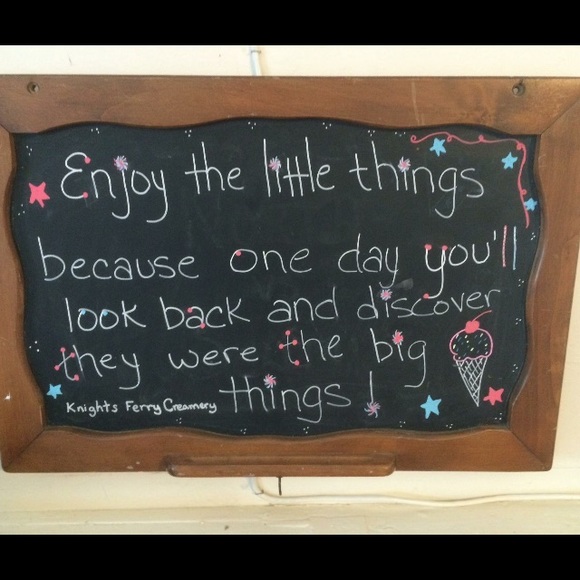 Enjoy the little things
because one day you'll
look back and discover
they were the big
things!
Knights Ferry Creamery